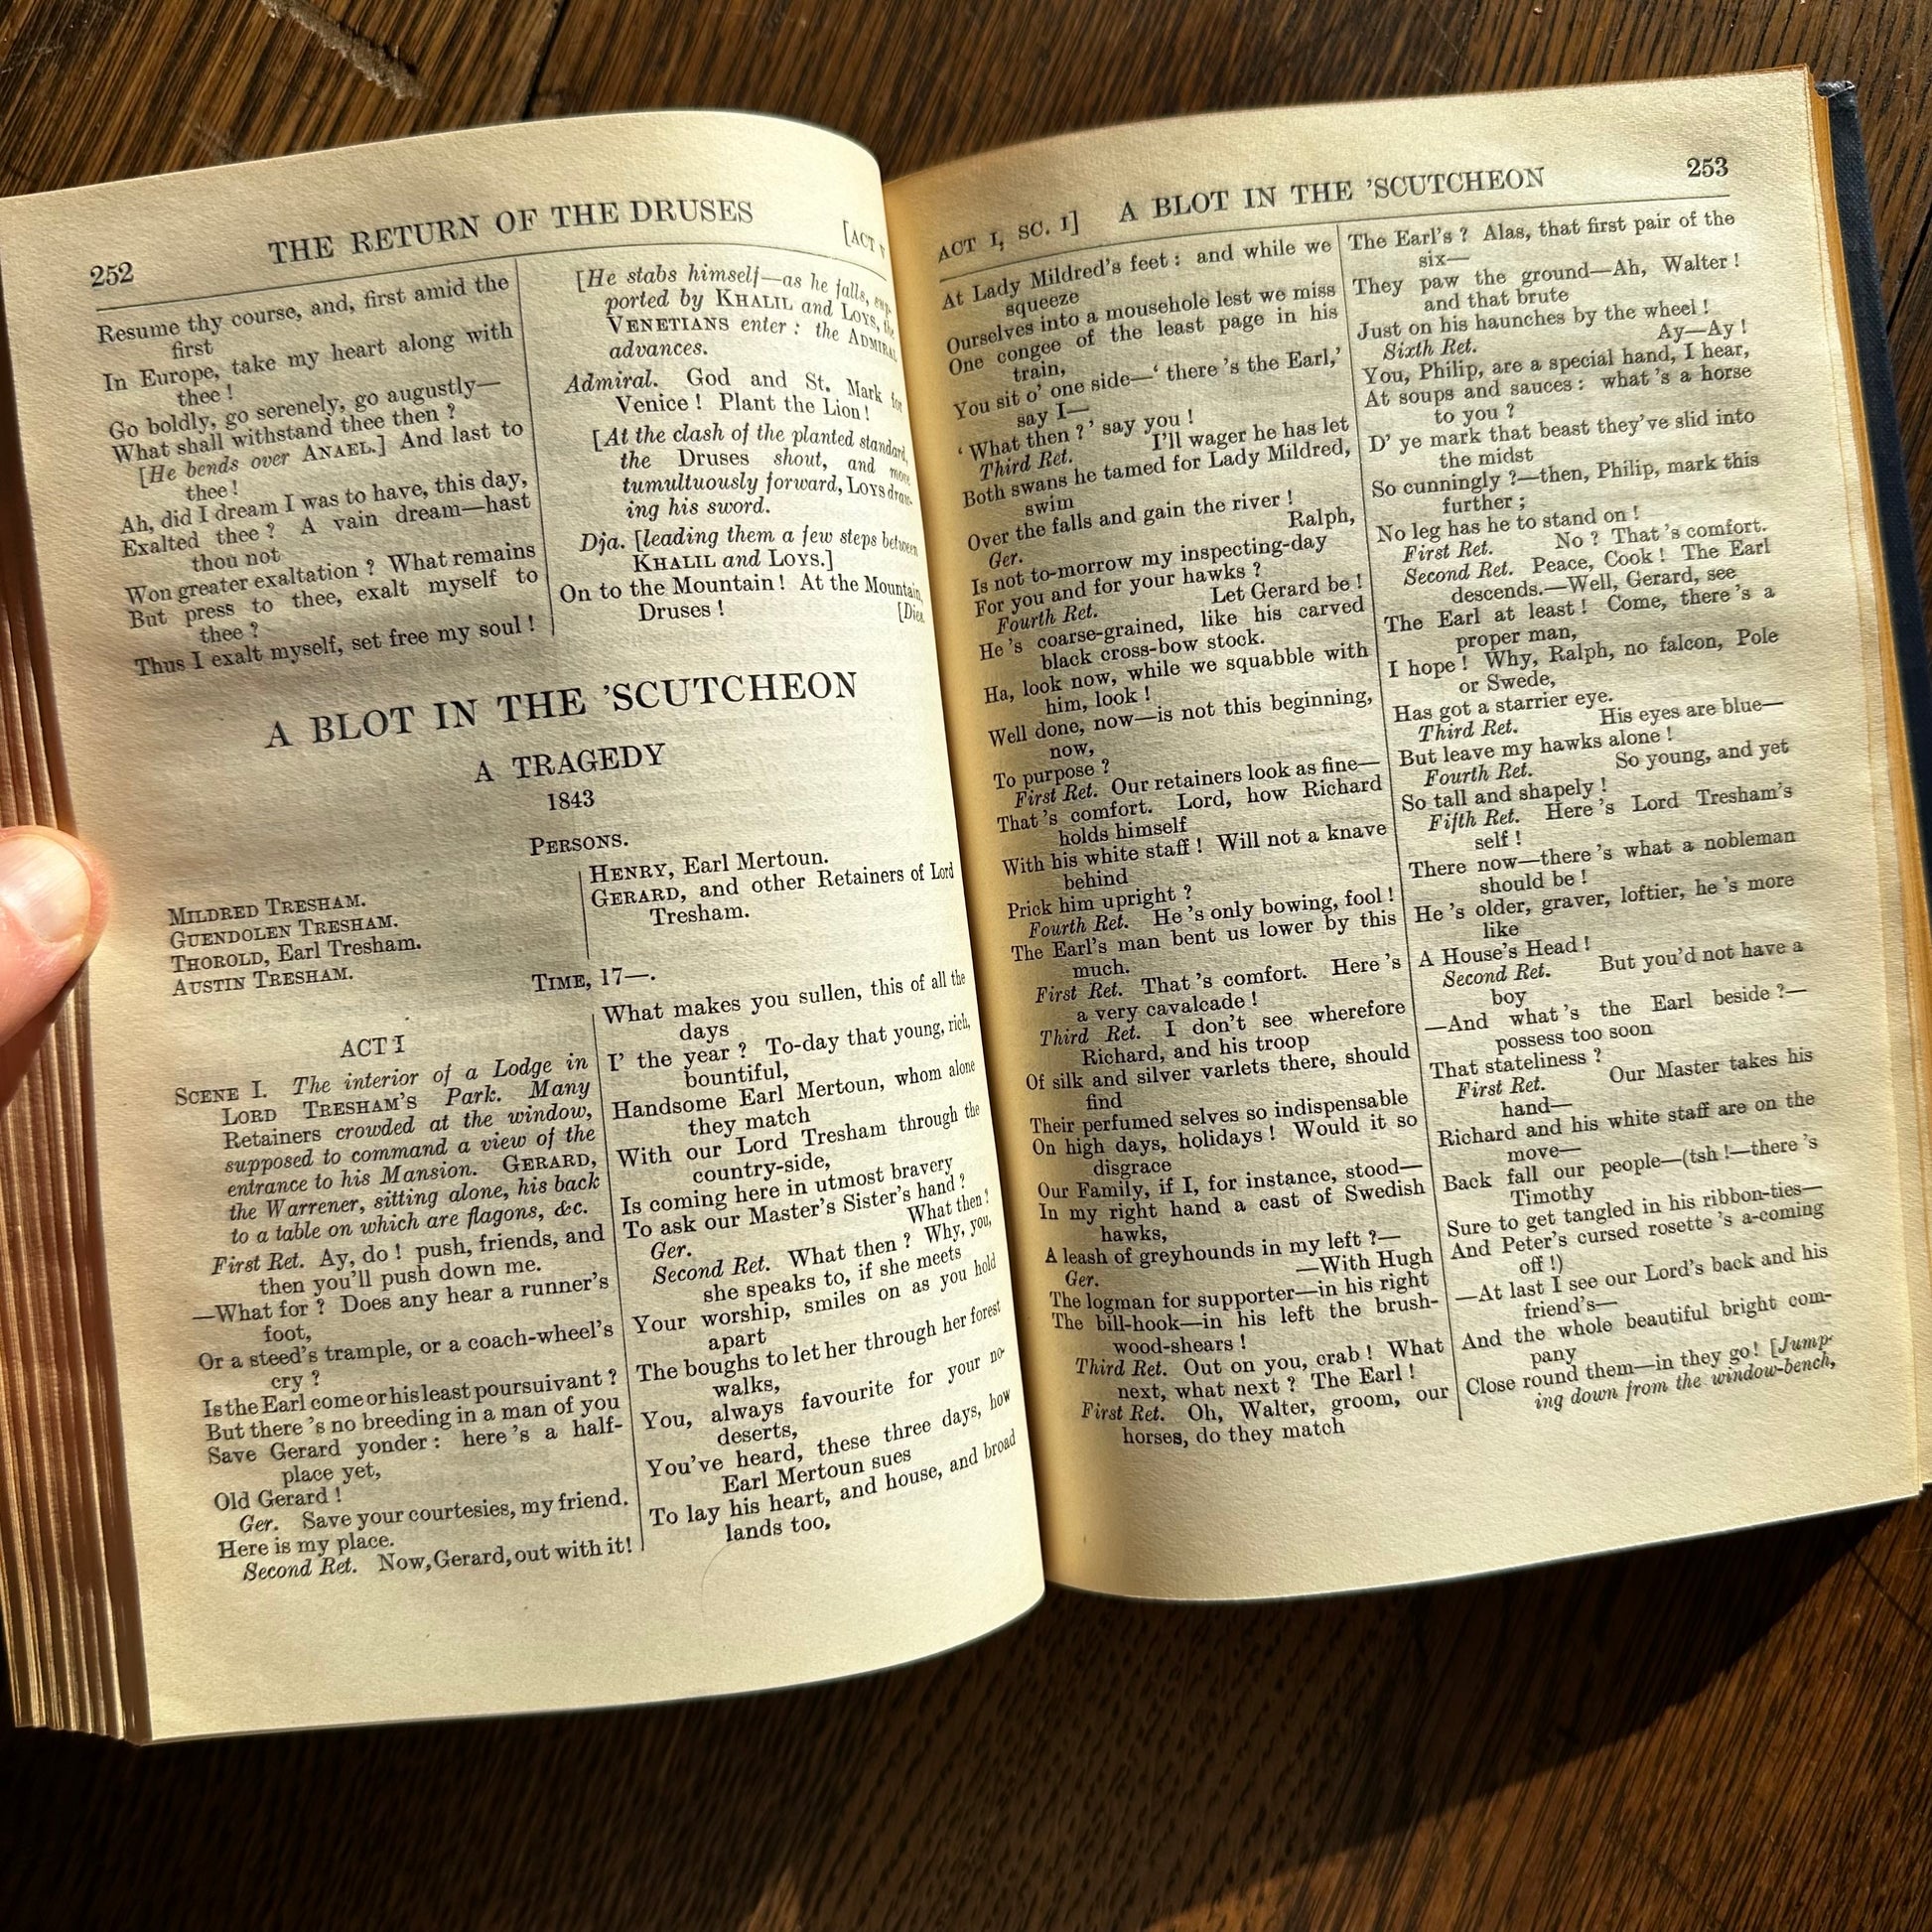 252
THE RETURN OF THE DRUSES
[ACT V
Resume thy course, and, first amid the
first
In Europe, take my heart along with
thee !
Go boldly, go serenely, go augustly—
What shall withstand thee then ?
[He bends over ANAEL.] And last to
thee !
Ah, did I dream I was to have, this day,
Exalted thee ? A vain dream—hast
thou not
Won greater exaltation ? What remains
But press to thee, exalt myself to
thee ?
Thus I exalt myself, set free my soul !
[He stabs himself—as he falls, sup-
ported by KHALIL and LOYS, the
VENETIANS enter : the ADMIRAL
advances.
Admiral. God and St. Mark for
Venice ! Plant the Lion !
[At the clash of the planted standard,
the Druses shout, and move
tumultuously forward, LOYS draw-
ing his sword.
Dja. [leading them a few steps between
KHALIL and LOYS.]
On to the Mountain ! At the Mountain,
Druses !
[Dies.
A BLOT IN THE 'SCUTCHEON
A TRAGEDY
1843
PERSONS.
MILDRED TRESHAM.
GUENDOLEN TRESHAM.
THOROLD, Earl Tresham.
AUSTIN TRESHAM.
HENRY, Earl Mertoun.
GERARD, and other Retainers of Lord
Tresham.
TIME, 17—.
ACT I
SCENE I. The interior of a Lodge in
LORD TRESHAM'S Park. Many
Retainers crowded at the window,
supposed to command a view of the
entrance to his Mansion. GERARD,
the Warrener, sitting alone, his back
to a table on which are flagons, &c.
First Ret. Ay, do ! push, friends, and
then you'll push down me.
—What for ? Does any hear a runner's
foot,
Or a steed's trample, or a coach-wheel's
cry ?
Is the Earl come or his least poursuivant ?
But there 's no breeding in a man of you
Save Gerard yonder : here 's a half-
place yet,
Old Gerard !
Ger. Save your courtesies, my friend.
Here is my place.
Second Ret. Now, Gerard, out with it!
What makes you sullen, this of all the
days
I' the year ? To-day that young, rich,
bountiful,
Handsome Earl Mertoun, whom alone
they match
With our Lord Tresham through the
country-side,
Is coming here in utmost bravery
To ask our Master's Sister's hand ?
Ger. What then !
Second Ret. What then ? Why, you,
she speaks to, if she meets
Your worship, smiles on as you hold
apart
The boughs to let her through her forest
walks,
You, always favourite for your no-
deserts,
You've heard, these three days, how
Earl Mertoun sues
To lay his heart, and house, and broad
lands too,
ACT I, SC. I]
A BLOT IN THE 'SCUTCHEON
253
At Lady Mildred's feet : and while we
squeeze
Ourselves into a mousehole lest we miss
One congee of the least page in his
train,
You sit o' one side—' there 's the Earl,'
say I—
' What then ? ' say you !
Third Ret. I'll wager he has let
Both swans he tamed for Lady Mildred,
swim
Over the falls and gain the river !
Ger. Ralph,
Is not to-morrow my inspecting-day
For you and for your hawks ?
Fourth Ret. Let Gerard be !
He 's coarse-grained, like his carved
black cross-bow stock.
Ha, look now, while we squabble with
him, look !
Well done, now—is not this beginning,
now,
To purpose ?
First Ret. Our retainers look as fine—
That 's comfort. Lord, how Richard
holds himself
With his white staff ! Will not a knave
behind
Prick him upright ?
Fourth Ret. He 's only bowing, fool !
The Earl's man bent us lower by this
much.
First Ret. That 's comfort. Here 's
a very cavalcade !
Third Ret. I don't see wherefore
Richard, and his troop
Of silk and silver varlets there, should
find
Their perfumed selves so indispensable
On high days, holidays ! Would it so
disgrace
Our Family, if I, for instance, stood—
In my right hand a cast of Swedish
hawks,
A leash of greyhounds in my left ?—
Ger. —With Hugh
The logman for supporter—in his right
The bill-hook—in his left the brush-
wood-shears !
Third Ret. Out on you, crab ! What
next, what next ? The Earl !
First Ret. Oh, Walter, groom, our
horses, do they match
The Earl's ? Alas, that first pair of the
six—
They paw the ground—Ah, Walter !
and that brute
Just on his haunches by the wheel !
Sixth Ret. Ay—Ay !
You, Philip, are a special hand, I hear,
At soups and sauces : what 's a horse
to you ?
D' ye mark that beast they've slid into
the midst
So cunningly ?—then, Philip, mark this
further ;
No leg has he to stand on !
First Ret. No ? That 's comfort.
Second Ret. Peace, Cook ! The Earl
descends.—Well, Gerard, see
The Earl at least ! Come, there 's a
proper man,
I hope ! Why, Ralph, no falcon, Pole
or Swede,
Has got a starrier eye.
Third Ret. His eyes are blue—
But leave my hawks alone !
Fourth Ret. So young, and yet
So tall and shapely !
Fifth Ret. Here 's Lord Tresham's
self !
There now—there 's what a nobleman
should be !
He 's older, graver, loftier, he 's more
like
A House's Head !
Second Ret. But you'd not have a
boy
—And what 's the Earl beside ?—
possess too soon
That stateliness ?
First Ret. Our Master takes his
hand—
Richard and his white staff are on the
move—
Back fall our people—(tsh !—there 's
Timothy
Sure to get tangled in his ribbon-ties—
And Peter's cursed rosette 's a-coming
off !)
—At last I see our Lord's back and his
friend's—
And the whole beautiful bright com-
pany
Close round them—in they go ! [Jump-
ing down from the window-bench,